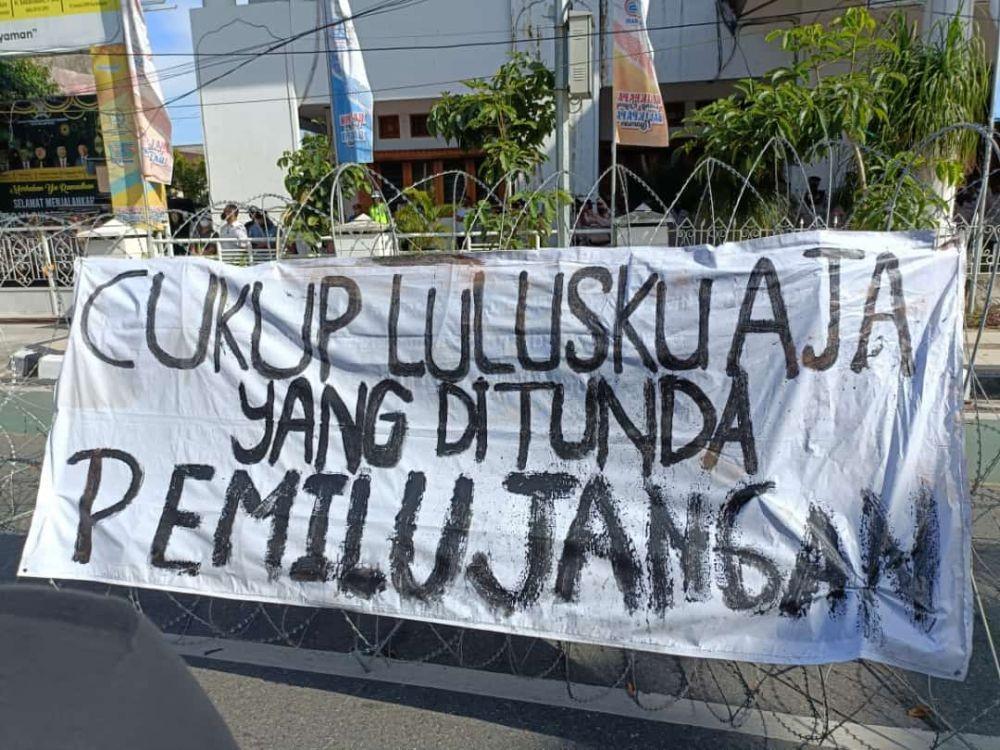 yaman"
Marhaban Ya Ramadhan
SELAMAT MENJALANKAN
CUKUP LULUSKU AJA
YANG DITUNDA
PEMILU JANGAN